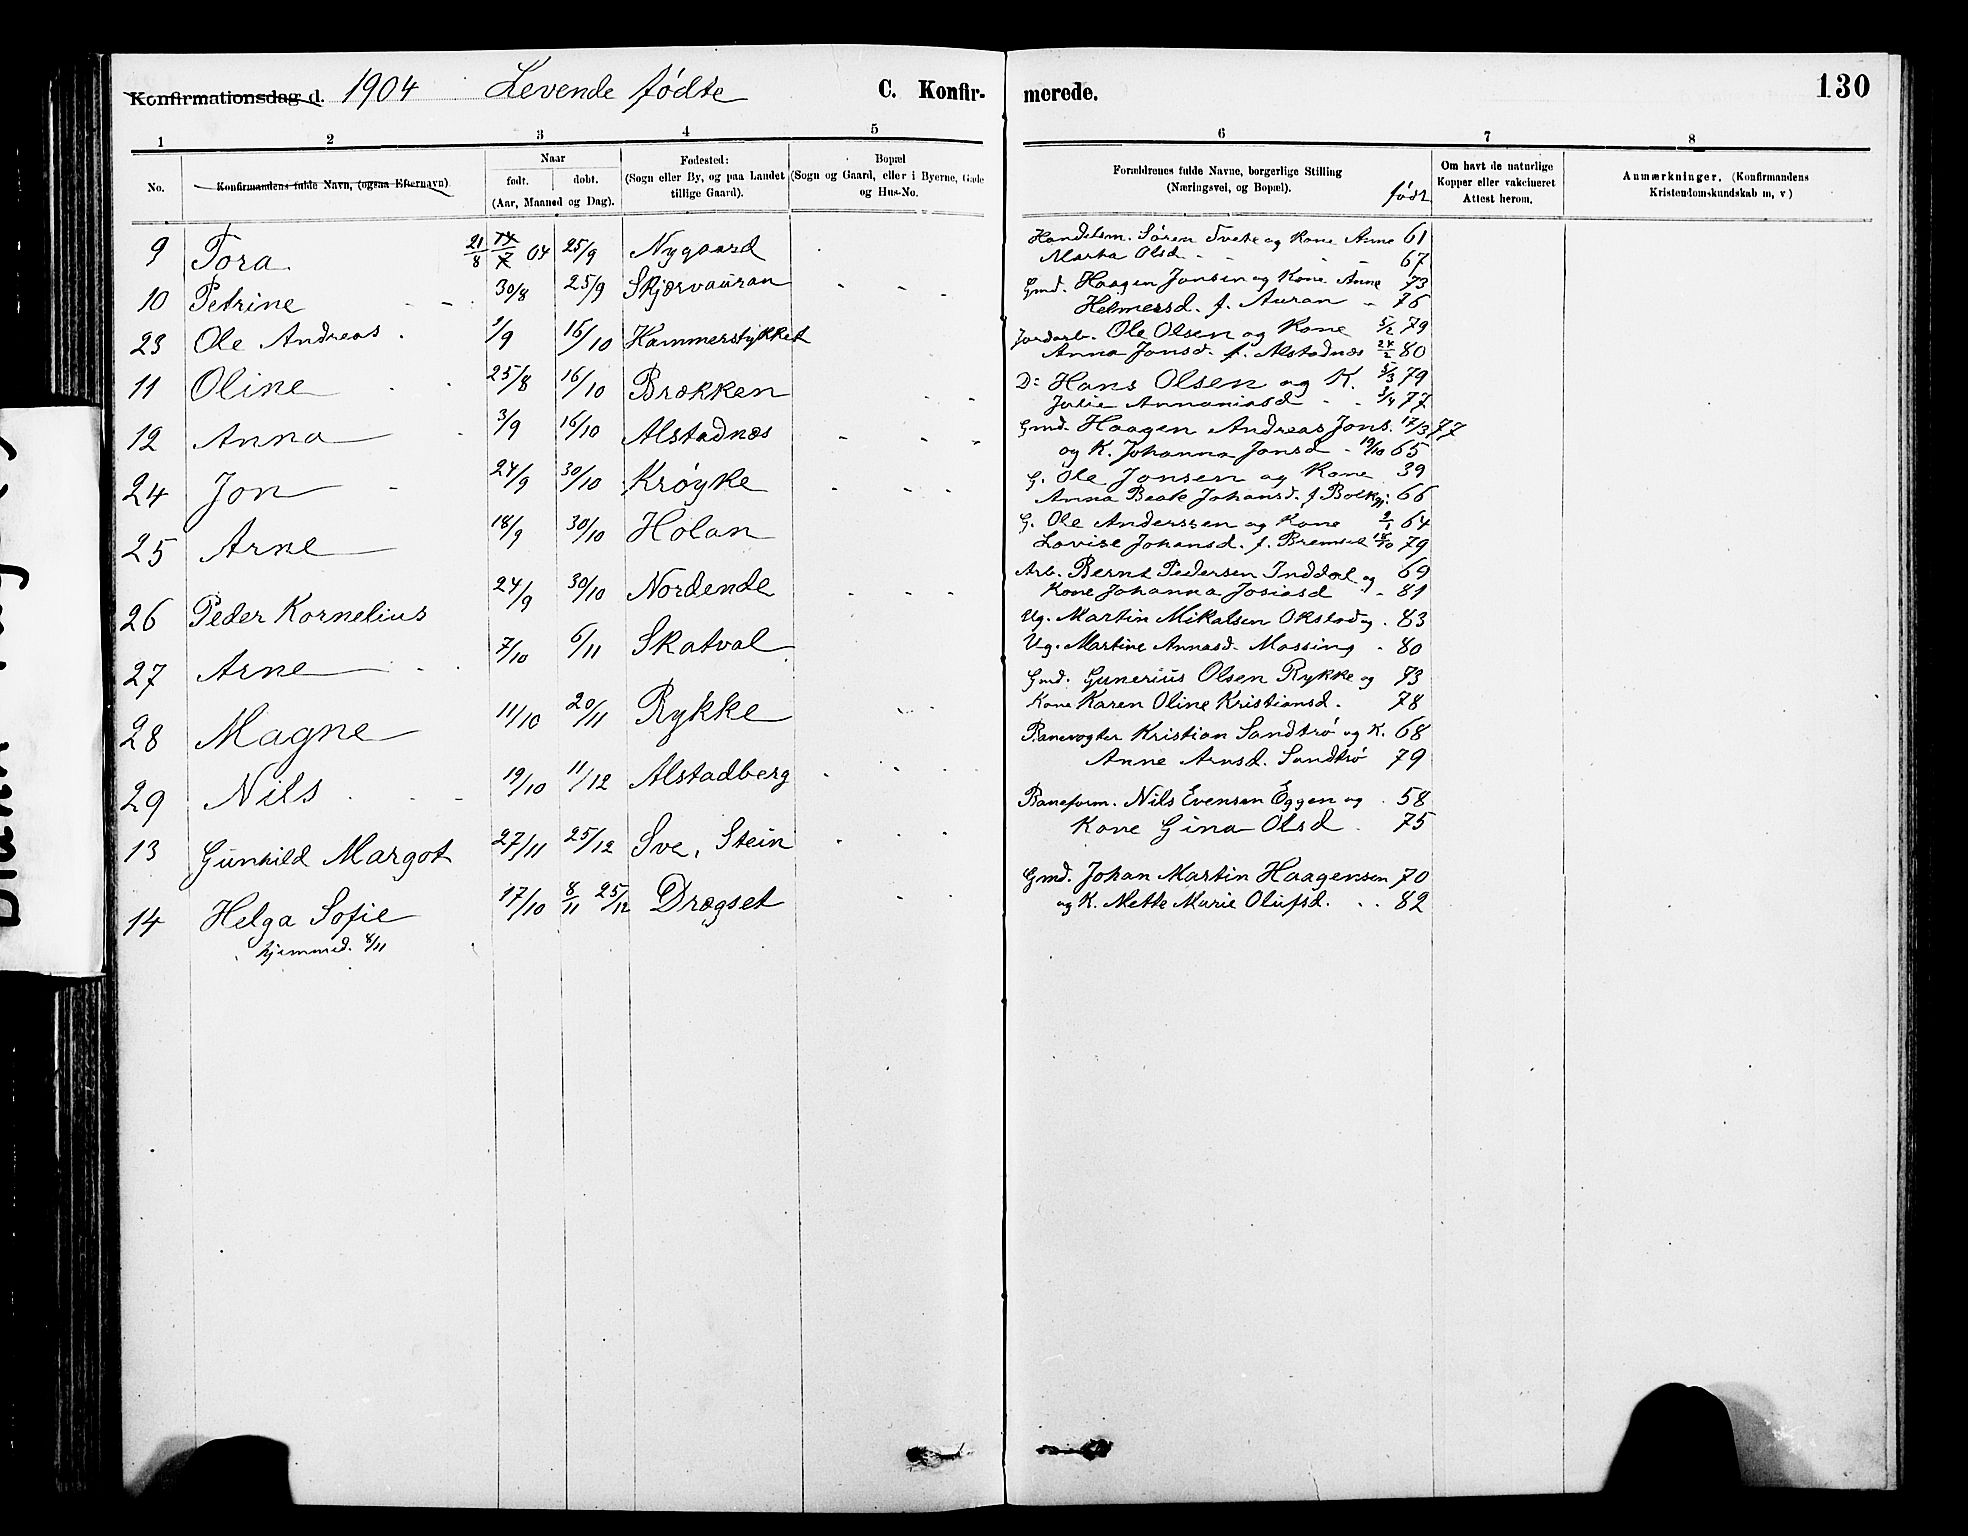 Konfirmationsdag d. 1904 Levende fødte C. Konfir-
merede. 130
1 2 3 4 5
6 7 8
No. Konfirmandens fulde Navn, (ogsaa Efternavn)
Naar
født. døbt.
(Aar, Maaned og Dag).
Fødested:
(Sogn eller By, og paa Landet
tillige Gaard).
Bopæl
(Sogn og Gaard, eller i Byerne, Gade
og Hus-No.
Forældrenes fulde Navne, borgerlige Stilling
(Næringsvei, og Bopæl). født
Om havt de naturlige
Kopper eller vakcineret
Attest herom.
Anmærkninger. (Konfirmandens
Kristendomskundskab m, v)
9 Tora 21/8 04 25/9 Nygaard
10 Petrine 30/8 25/9 Skjærvauran
23 Ole Andreas 1/9 16/10 Hammerstykket
11 Oline 25/8 16/10 Brækken
12 Anna 3/9 16/10 Alstadnæs
24 Jon 24/9 30/10 Krøyke
25 Arne 18/9 30/10 Holan
26 Peder Kornelius 24/9 30/10 Nordende
27 Arne 7/10 6/11 Skatval
28 Magne 11/10 20/11 Rykke
29 Nils 19/10 11/12 Alstadberg
13 Gunhild Margot 27/11 25/12 Sve, Stein
14 Helga Sofie 17/10 8/11 25/12 Drægset
hjemmed. 8/11
Handelsm. Søren Tvete og Kone Anne 61
Marta Olsd. 67
Gmd. Haagen Jonsen og Kone Anne 73
Helmersd. f. Auran 76
Jordarb. Ole Olsen og Kone 5/2 79
Anna Jonsd. f. Alstadnæs 24/2 80
D: Hans Olsen og K. 5/3 79
Julie Annaniasd 3/4 77
Gmd. Haagen Andreas Jons. 17/3 77
og K. Johanna Jonsd 19/10 65
G. Ole Jonsen og Kone 39
Anna Beate Johansd. f 66
G. Ole Anderssen og Kone 2/1 64
Lovise Johansd. f. 79
Arb. Bernt Pedersen Inddal og 69
Kone Johanna Josiasd 81
Ug. Martin Mikalsen Okstad og 83
Ug. Martine Annasd. Massing 80
Gmd. Gunerius Olsen Rykke og 73
Kone Karen Oline Kristiansd. 78
Banevogter Kristian Sandtrø og K. 68
Anne Arnsd. Sandtrø 79
Baneform. Nils Evensen Eggen og 58
Kone Gina Olsd. 75
Gmd. Johan Martin Haagensen 70
og K. Mette Marie Olufsd. 82